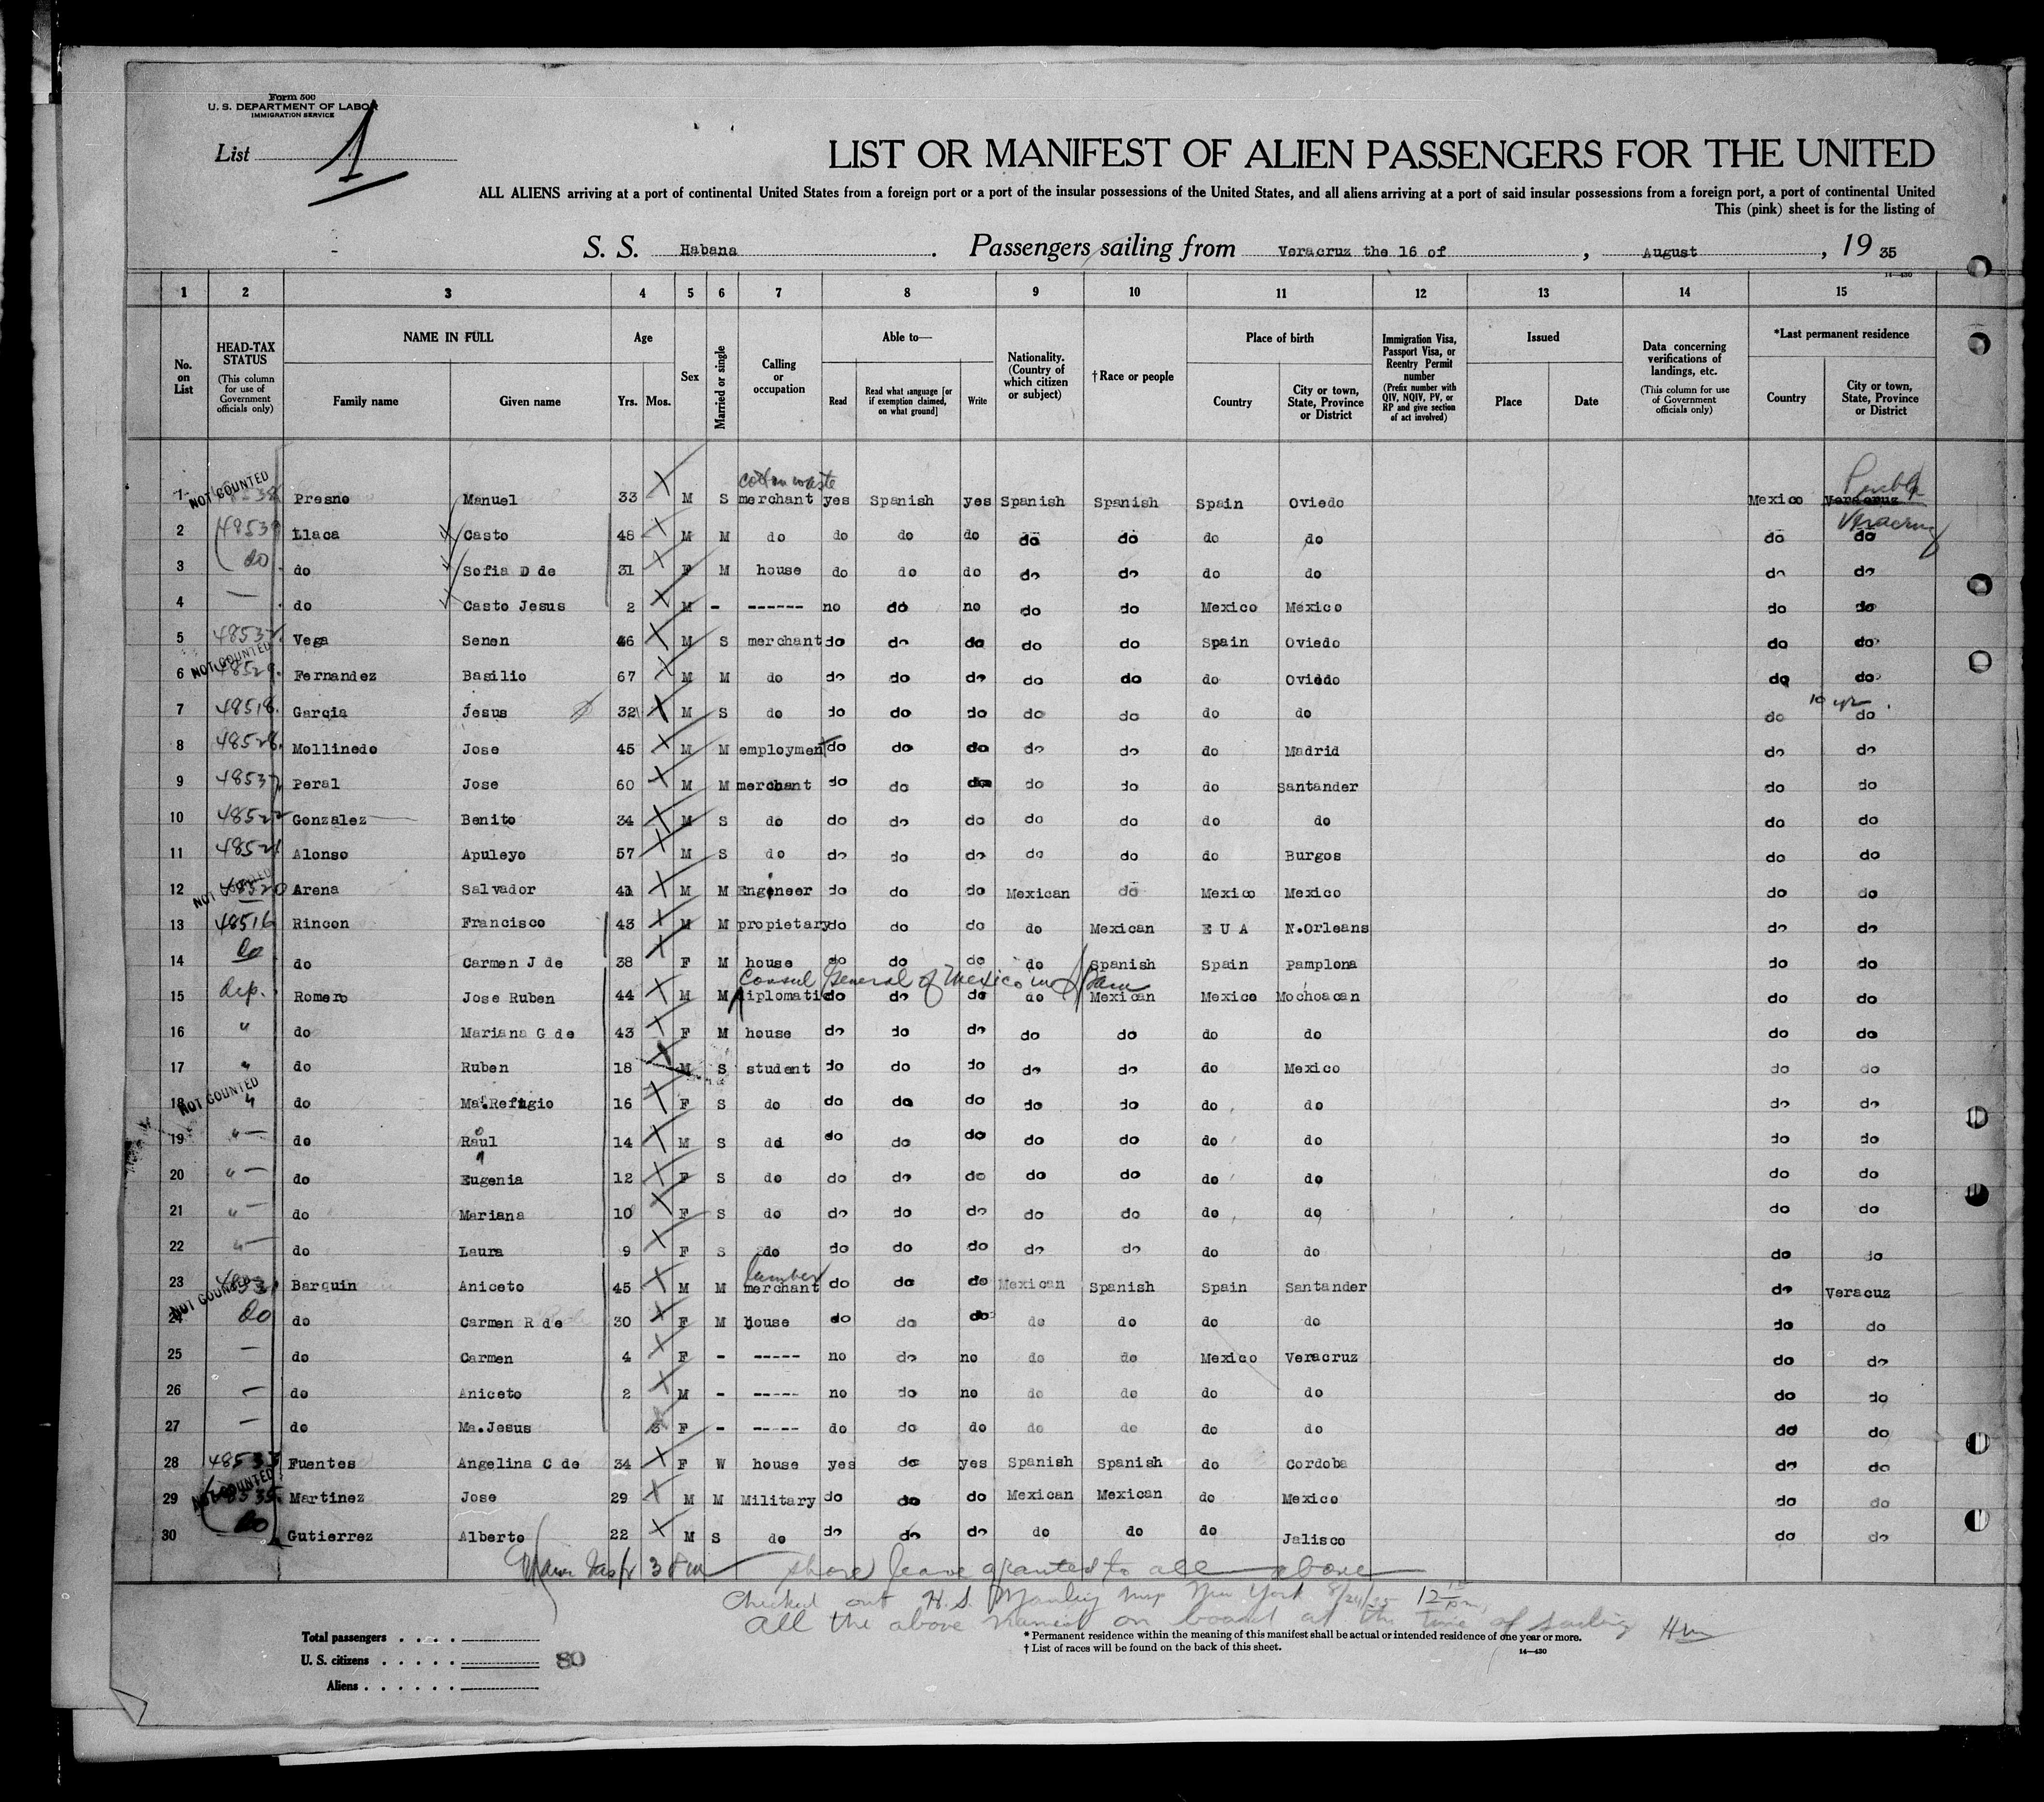 Form 500
U. S. DEPARTMENT OF LABOR
IMMIGRATION SERVICE
List 1
LIST OR MANIFEST OF ALIEN PASSENGERS FOR THE UNITED
ALL ALIENS arriving at a port of continental United States from a foreign port or a port of the insular possessions of the United States, and all aliens arriving at a port of said insular possessions from a foreign port, a port of continental United
This (pink) sheet is for the listing of
S. S. Habana . Passengers sailing from Veracruz the 16 of , August , 19 35
14—430
1 2 3 4 5 6 7 8 9 10 11 12 13 14 15
No. on List
HEAD-TAX STATUS (This column for use of Government officials only)
NAME IN FULL Family name Given name
Age Yrs. Mos.
Sex
Married or single
Calling or occupation
Able to— Read Read what language [or if exemption claimed, on what ground] Write
Nationality. (Country of which citizen or subject)
†Race or people
Place of birth Country City or town, State, Province or District
Immigration Visa, Passport Visa, or Reentry Permit number (Prefix number with QIV, NQIV, PV, or RP and give section of act involved)
Issued Place Date
Data concerning verifications of landings, etc. (This column for use of Government officials only)
*Last permanent residence Country City or town, State, Province or District
cotton waste Puebla
1 NOT COUNTED Presno Manuel 33 M S merchant yes Spanish yes Spanish Spanish Spain Oviedo Mexico Veracruz
Veracruz
2 Llaca Casto 48 M M do do do do do do do do do do
3 do do Sofia D de 31 F M house do do do do do do do do do
4 — do Casto Jesus 2 M - ------ no do no do do Mexico Mexico do do
5 Vega Senen 46 M S merchant do do do do do Spain Oviedo do do
6 NOT COUNTED Fernandez Basilio 67 M M do do do do do do do Oviedo do do
7 48518 Garcia Jesus 32 M S do do do do do do do do 10 yr do do
8 48528 Mollinedo Jose 45 M M employment do do do do do do Madrid do do
9 48537 Peral Jose 60 M M merchant do do do do do do Santander do do
10 Gonzalez Benito 34 M S do do do do do do do do do do
11 Alonso Apuleyo 57 M S do do do do do do do Burgos do do
12 NOT COUNTED 48520 Arena Salvador 41 M M Engineer do do do Mexican do Mexico Mexico do do
13 48516 Rincon Francisco 43 M M propietary do do do do Mexican E U A N.Orleans do do
14 do do Carmen J de 38 F M house do do do do Spanish Spain Pamplona do do
Consul General of Mexico in Spain
15 dip. Romero Jose Ruben 44 M M diplomatic do do do do Mexican Mexico Mochoacan do do
16 " do Mariana G de 43 F M house do do do do do do do do do
17 " do Ruben 18 M S student do do do do do do Mexico do do
18 NOT COUNTED " do Ma.Refugio 16 F S do do do do do do do do do do
19 " — do Raul 14 M S do do do do do do do do do do
20 " — do Eugenia 12 F S do do do do do do do do do do
21 " — do Mariana 10 F S do do do do do do do do do do
22 " — do Laura 9 F S do do do do do do do do do do
lumber
23 NOT COUNTED Barquin Aniceto 45 M M merchant do do do Mexican Spanish Spain Santander do Veracuz
24 do do Carmen R de 30 F M house do do do do do do do do do
25 — do Carmen 4 F - ----- no do no do do Mexico Veracruz do do
26 — do Aniceto 2 M - ----- no do no do do do do do do
27 — do Ma.Jesus 3 F - ----- do do do do do do do do do
28 48533 Fuentes Angelina C de 34 F W house yes do yes Spanish Spanish do Cordoba do do
29 NOT COUNTED 48535 Martinez Jose 29 M M Military do do do Mexican Mexican do Mexico do do
30 do Gutierrez Alberto 22 M S do do do do do do do Jalisco do do
shore leave granted to all above
Checked out H. S. Manley New York 8/24/35 12
All the above named on board at the time of sailing HM
Total passengers . . . .
U. S. citizens . . . . . 80
Aliens . . . . . .
* Permanent residence within the meaning of this manifest shall be actual or intended residence of one year or more.
† List of races will be found on the back of this sheet.
14—430